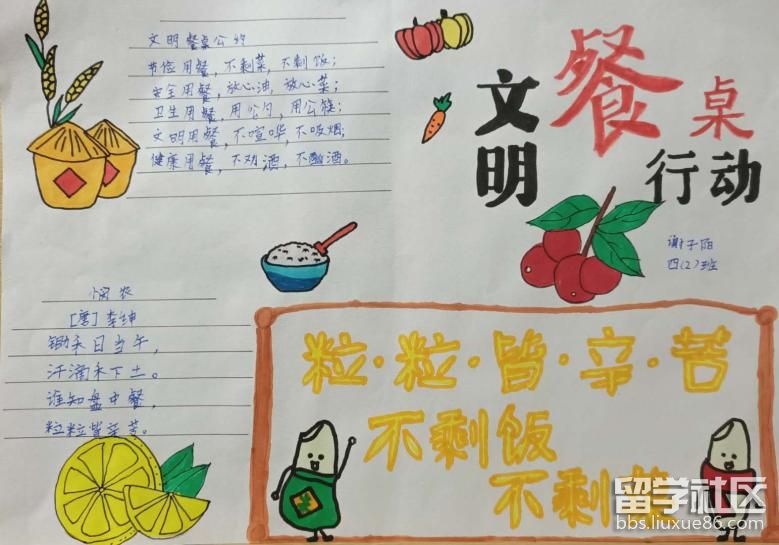 文明餐桌公约
节俭用餐，不剩菜，不剩饭；
安全用餐，放心油，放心菜；
卫生用餐，用公勺，用公筷；
文明用餐，不喧哗，不吸烟；
健康用餐，不劝酒，不酗酒。
文明餐桌
行动
谢子阳
四(2)班
悯农
[唐]李绅
锄禾日当午，
汗滴禾下土。
谁知盘中餐，
粒粒皆辛苦。
粒·粒·皆·辛·苦
不剩饭
不剩菜
留学社区
bbs.liuxue86.com